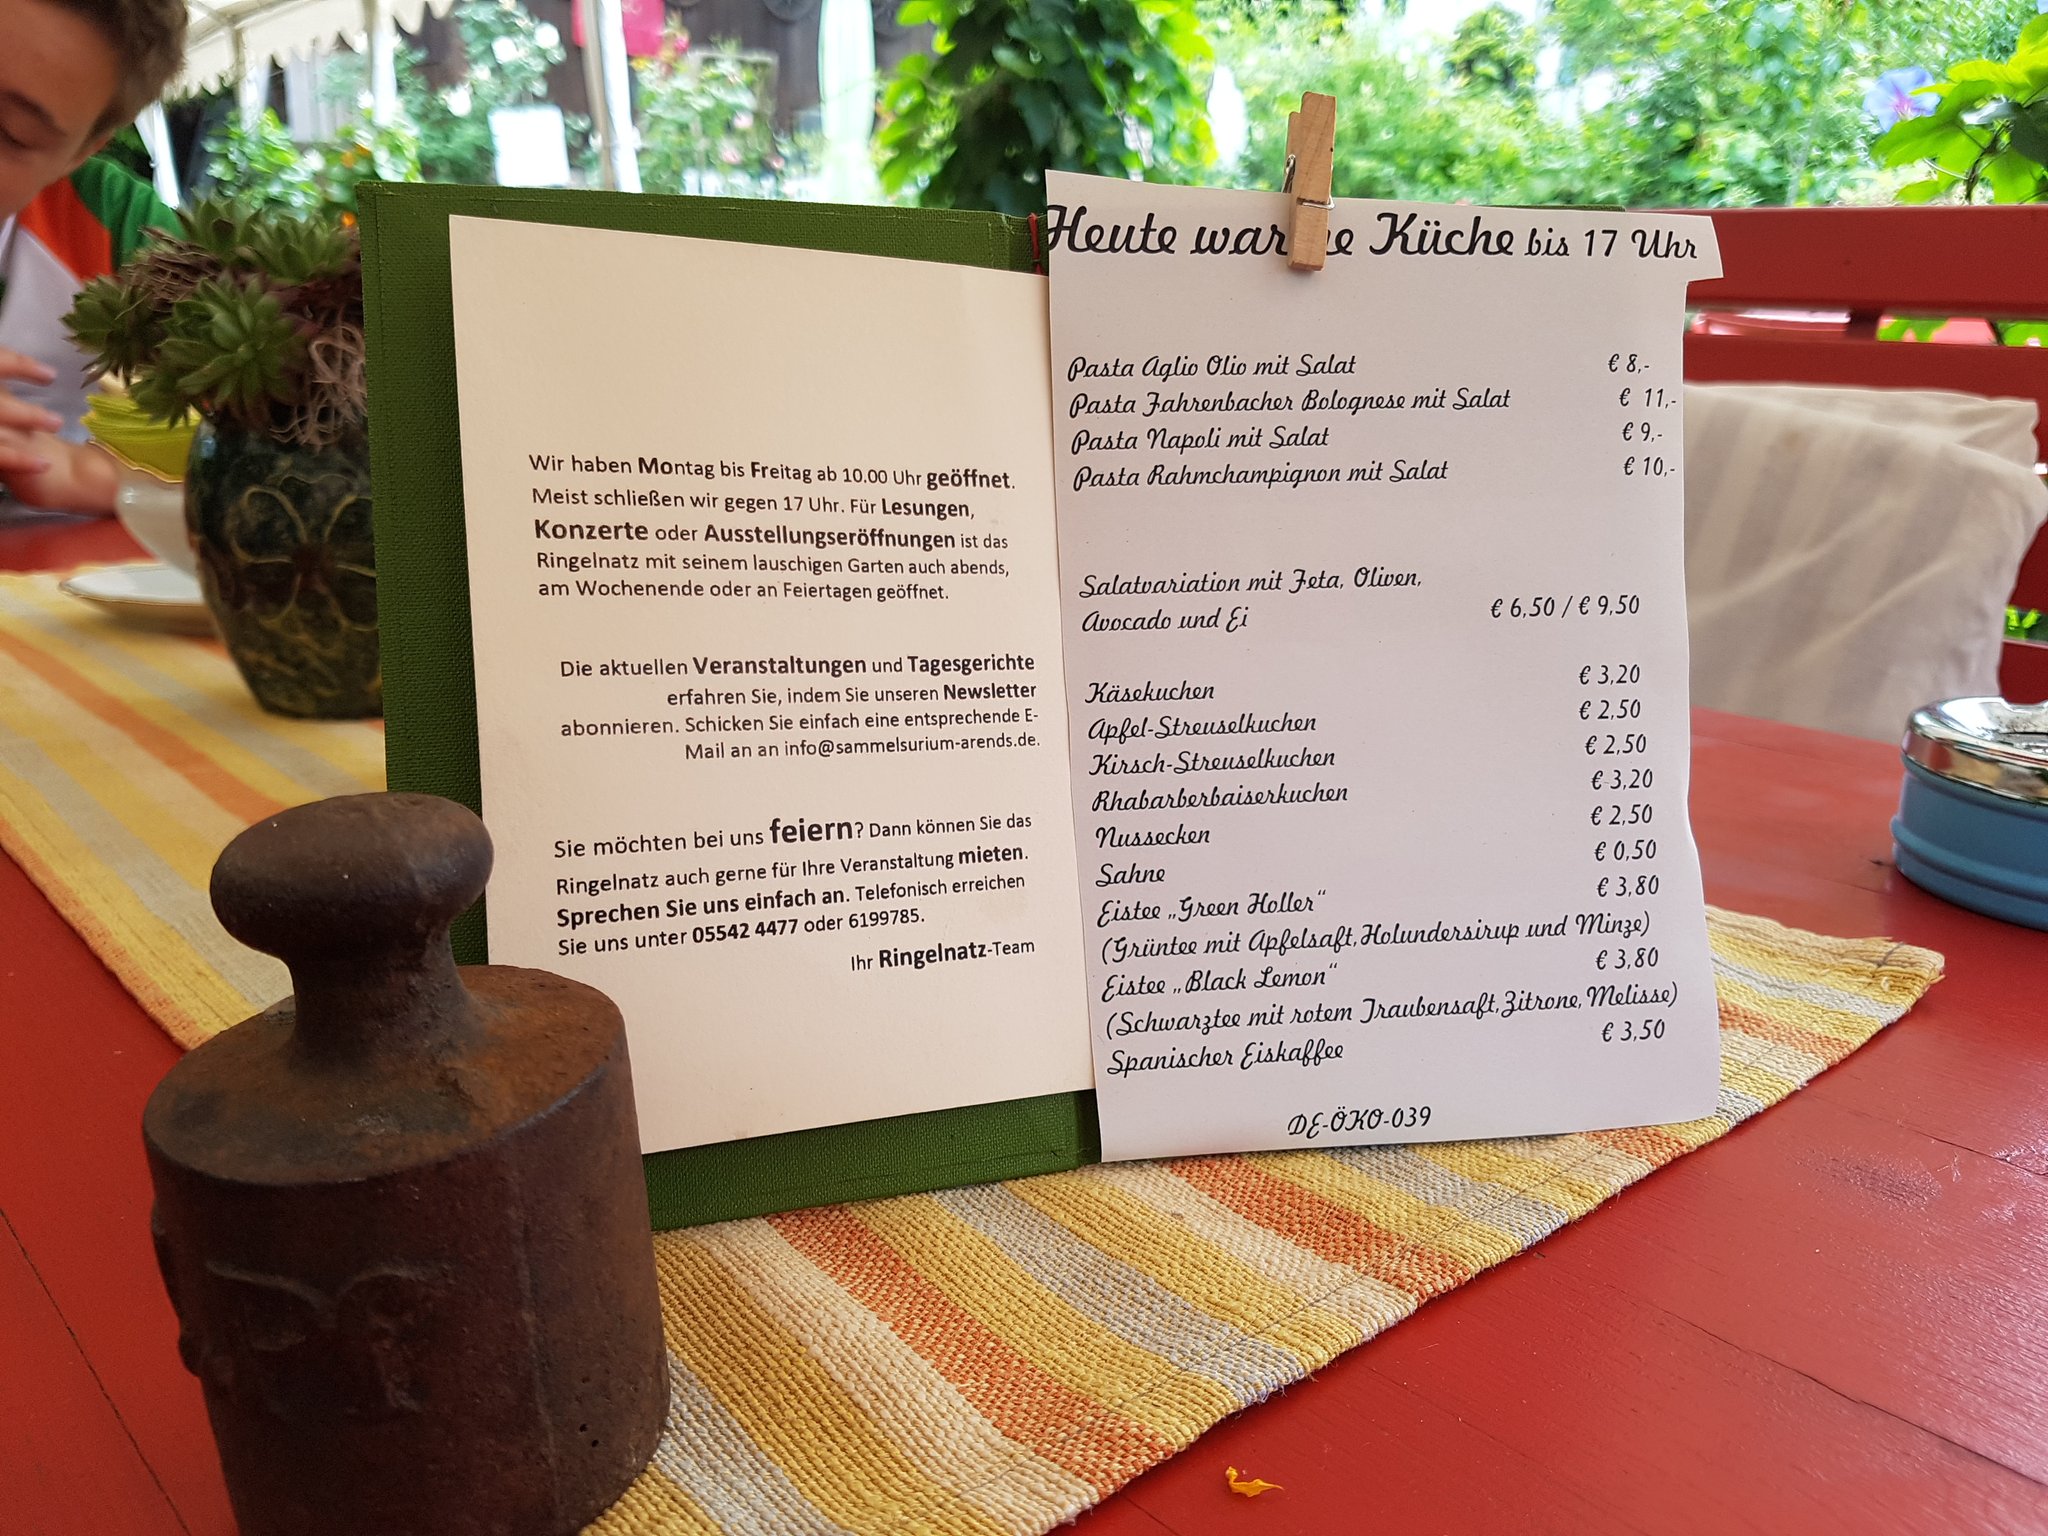 Wir haben Montag bis Freitag ab 10.00 Uhr geöffnet.
Meist schließen wir gegen 17 Uhr. Für Lesungen,
Konzerte oder Ausstellungseröffnungen ist das
Ringelnatz mit seinem lauschigen Garten auch abends,
am Wochenende oder an Feiertagen geöffnet.
Die aktuellen Veranstaltungen und Tagesgerichte
erfahren Sie, indem Sie unseren Newsletter
abonnieren. Schicken Sie einfach eine entsprechende E-
Mail an an info@sammelsurium-arends.de.
Sie möchten bei uns feiern? Dann können Sie das
Ringelnatz auch gerne für Ihre Veranstaltung mieten.
Sprechen Sie uns einfach an. Telefonisch erreichen
Sie uns unter 05542 4477 oder 6199785.
Ihr Ringelnatz-Team
Heute warme Küche bis 17 Uhr
Pasta Aglio Olio mit Salat € 8,-
Pasta Fahrenbacher Bolognese mit Salat € 11,-
Pasta Napoli mit Salat € 9,-
Pasta Rahmchampignon mit Salat € 10,-
Salatvariation mit Feta, Oliven,
Avocado und Ei € 6,50 / € 9,50
Käsekuchen € 3,20
Apfel-Streuselkuchen € 2,50
Kirsch-Streuselkuchen € 2,50
Rhabarberbaiserkuchen € 3,20
Nussecken € 2,50
Sahne € 0,50
Eistee „Green Holler“ € 3,80
(Grüntee mit Apfelsaft, Holundersirup und Minze)
Eistee „Black Lemon“ € 3,80
(Schwarztee mit rotem Traubensaft, Zitrone, Melisse)
Spanischer Eiskaffee € 3,50
DE-ÖKO-039